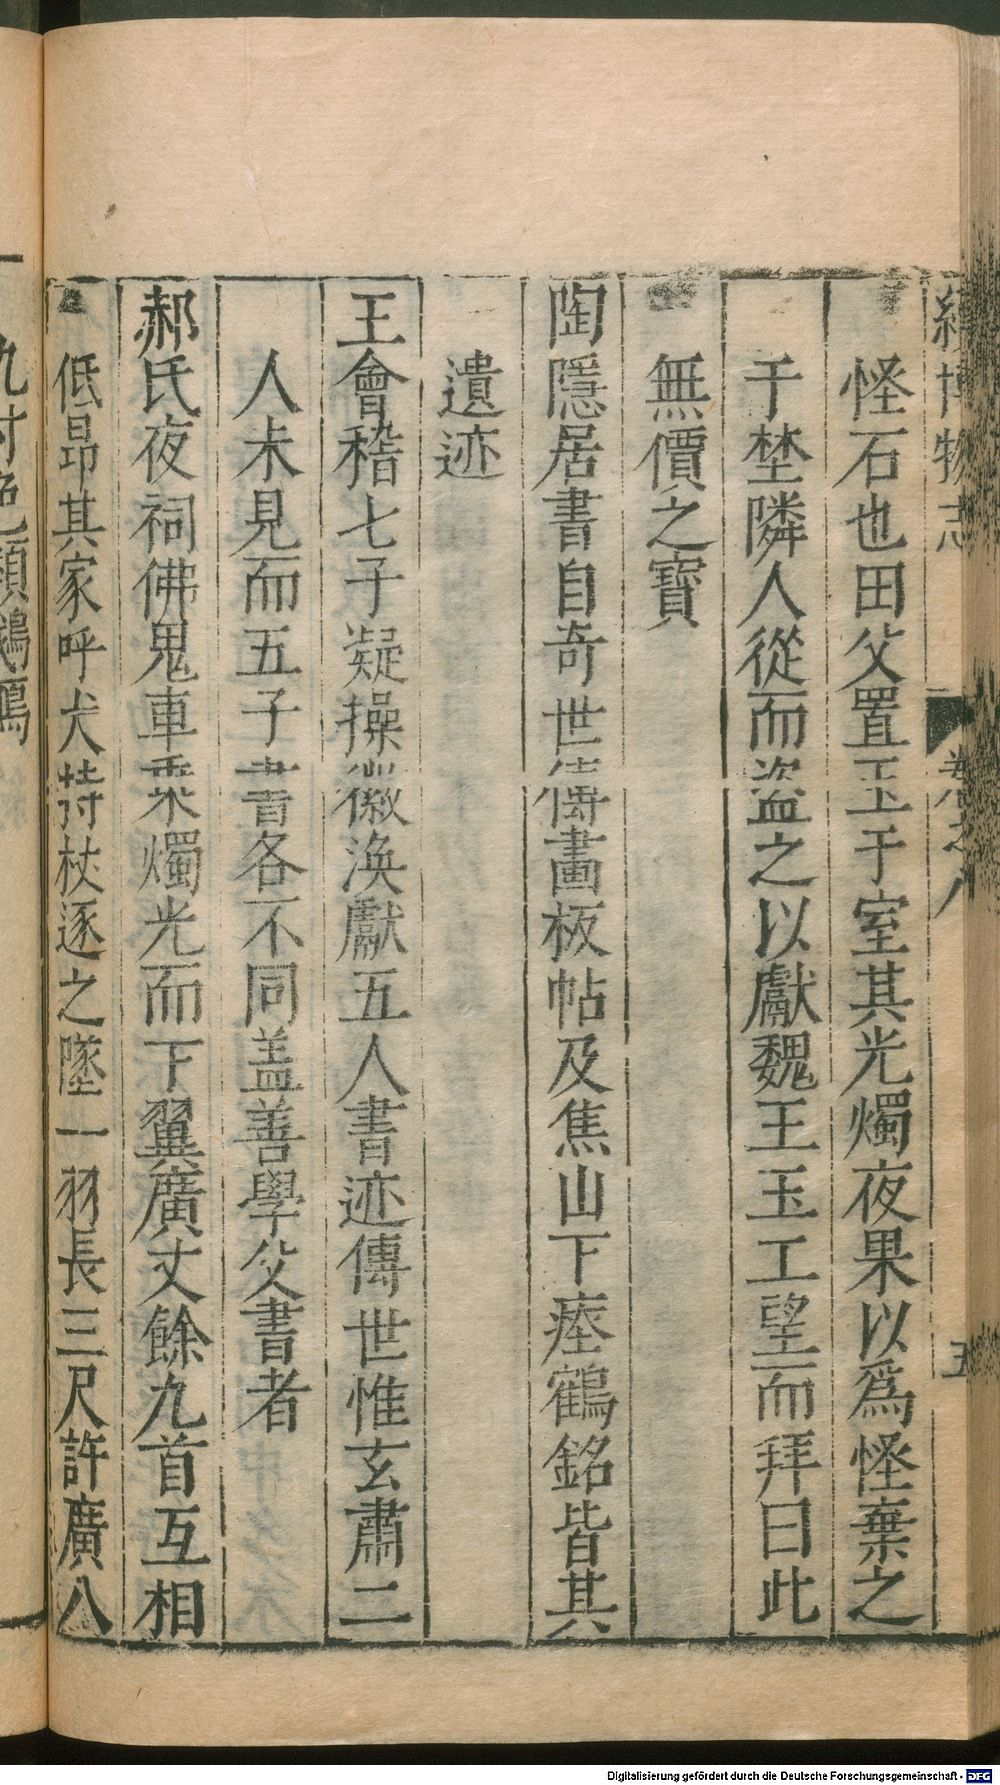 續博物志 卷之八 五
怪石也田父置玉于室其光燭夜果以爲怪棄之
于埜隣人從而盜之以獻魏王玉工望而拜曰此
無價之寶
陶隱居書自奇世傳畫板帖及焦山下瘞鶴銘皆其
遺迹
王會稽七子疑操徽渙獻五人書迹傳世惟玄肅二
人未見而五子書各不同盖善學父書者
郝氏夜祠佛鬼車乘燭光而下翼廣丈餘九首互相
低昂其家呼犬持杖逐之墜一羽長三尺許廣八
九寸色類鵝鴈
Digitalisierung gefördert durch die Deutsche Forschungsgemeinschaft - DFG